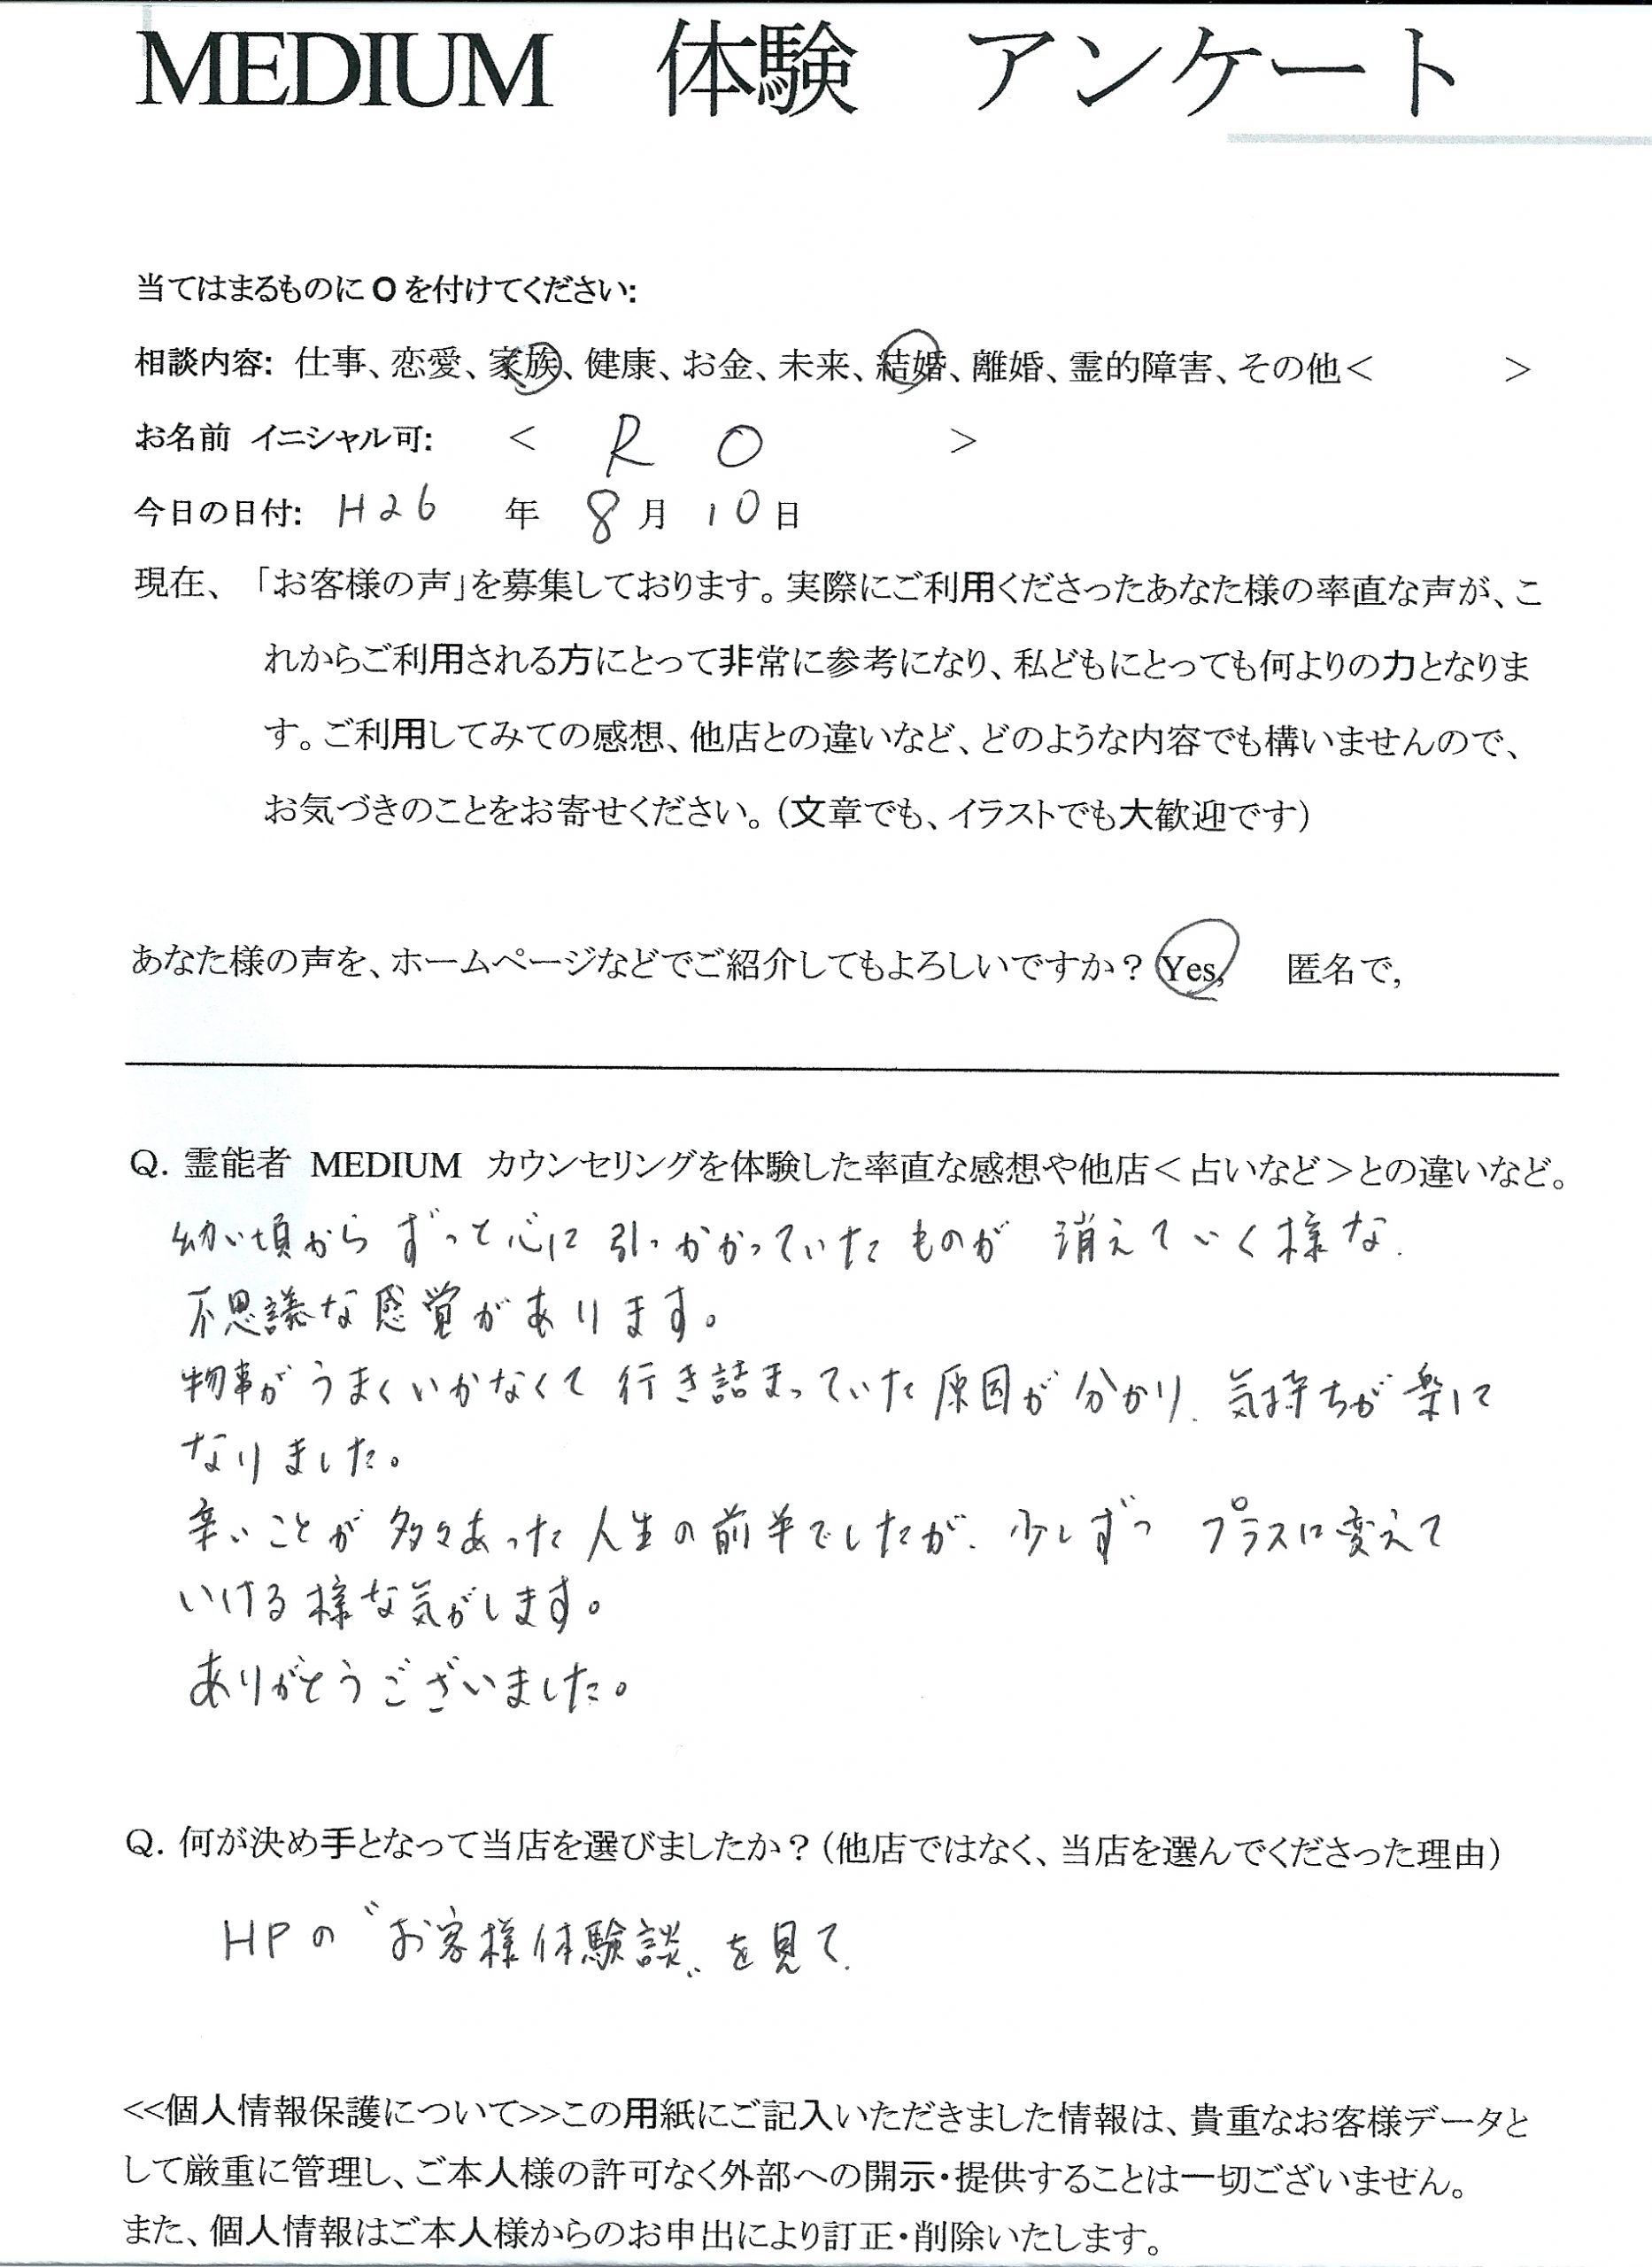 MEDIUM 体験 アンケート
当てはまるものにOを付けてください:
相談内容: 仕事、恋愛、家族、健康、お金、未来、結婚、離婚、霊的障害、その他＜ ＞
お名前 イニシャル可: ＜ R O ＞
今日の日付: H26 年 8月 10日
現在、「お客様の声」を募集しております。実際にご利用くださったあなた様の率直な声が、こ
れからご利用される方にとって非常に参考になり、私どもにとっても何よりの力となりま
す。ご利用してみての感想、他店との違いなど、どのような内容でも構いませんので、
お気づきのことをお寄せください。（文章でも、イラストでも大歓迎です）
あなた様の声を、ホームページなどでご紹介してもよろしいですか？ Yes, 匿名で,
Q. 霊能者 MEDIUM カウンセリングを体験した率直な感想や他店＜占いなど＞との違いなど。
幼い頃から ずっと心に引っかかっていたものが 消えていく様な
不思議な感覚があります。
物事がうまくいかなくて行き詰まっていた原因が分かり、気持ちが楽に
なりました。
辛いことが多々あった人生の前半でしたが、少しずつ プラスに変えて
いける様な気がします。
ありがとうございました。
Q. 何が決め手となって当店を選びましたか？（他店ではなく、当店を選んでくださった理由）
HPの〝お客様体験談〟を見て.
<<個人情報保護について>>この用紙にご記入いただきました情報は、貴重なお客様データと
して厳重に管理し、ご本人様の許可なく外部への開示・提供することは一切ございません。
また、個人情報はご本人様からのお申出により訂正・削除いたします。